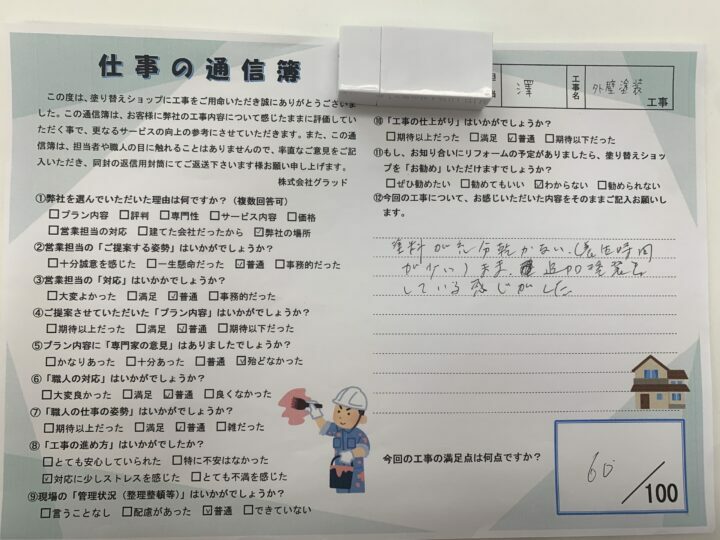 仕事の通信簿
この度は、塗り替えショップに工事をご用命いただき誠にありがとうございま
した。この通信簿は、お客様に弊社の工事内容について感じたままに評価してい
ただく事で、更なるサービスの向上の参考にさせていただきます。また、この通
信簿は、担当者や職人の目に触れることはありませんので、率直なご意見をご記
入いただき、同封の返信用封筒にてご返送下さいます様お願い申し上げます。
株式会社グラッド
①弊社を選んでいただいた理由は何ですか？（複数回答可）
□プラン内容 □評判 □専門性 □サービス内容 □価格
□営業担当の対応 □建てた会社だったから ☑弊社の場所
②営業担当の「ご提案する姿勢」はいかがでしょうか？
□十分誠意を感じた □一生懸命だった ☑普通 □事務的だった
③営業担当の「対応」はいかがでしょうか？
□大変よかった □満足 ☑普通 □事務的だった
④ご提案させていただいた「プラン内容」はいかがでしょうか？
□期待以上だった □満足 ☑普通 □期待以下だった
⑤プラン内容に「専門家の意見」はありましたでしょうか？
□かなりあった □十分あった □普通 ☑殆どなかった
⑥「職人の対応」はいかがでしょうか？
□大変良かった □満足 ☑普通 □良くなかった
⑦「職人の仕事の姿勢」はいかがでしょうか？
□期待以上だった □満足 ☑普通 □雑だった
⑧「工事の進め方」はいかがでしたか？
□とても安心していられた □特に不安はなかった
☑対応に少しストレスを感じた □とても不満を感じた
⑨現場の「管理状況（整理整頓等）」はいかがでしょうか？
□言うことなし □配慮があった ☑普通 □できていない
澤 工事名 外壁塗装 工事
⑩「工事の仕上がり」はいかがでしょうか？
□期待以上だった □満足 ☑普通 □期待以下だった
⑪もし、お知り合いにリフォームの予定がありましたら、塗り替えショッ
プを「お勧め」いただけますでしょうか？
□ぜひ勧めたい □勧めてもいい ☑わからない □勧められない
⑫今回の工事について、お感じいただいた内容をそのままご記入お願いし
ます。
塗料が充分乾かない（養生時間
が少い）まま、追加塗装を
している感じがした
今回の工事の満足点は何点ですか？
60/100